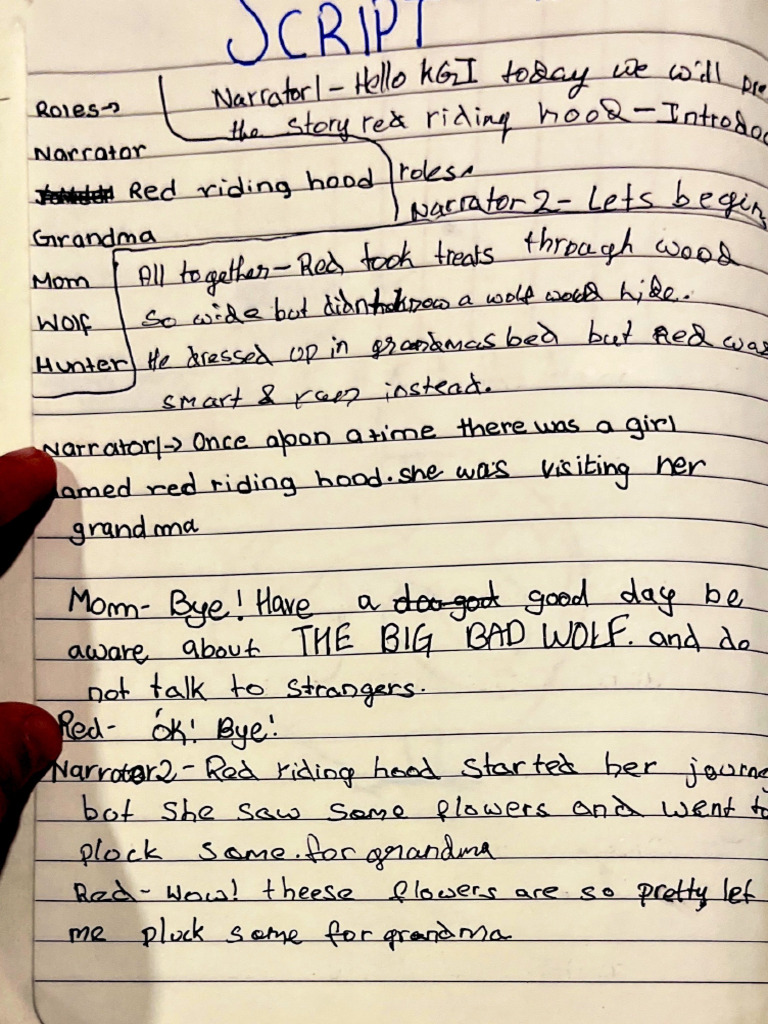 SCRIPT
Roles→
Narrator
Red riding hood
Grandma
Mom
Wolf
Hunter
Narrator1- Hello KG1 today we will pre
the story red riding hood - Introduc
roles.
Narrator 2- Lets begin
All together- Red took treats through wood
so wide but didn't know a wolf would hide.
He dressed up in grandmas bed but Red was
smart & ran instead.
Narrator1→ Once apon a time there was a girl
named red riding hood. she was visiting her
grandma
Mom- Bye! Have a good day be
aware about THE BIG BAD WOLF. and do
not talk to strangers.
Red- OK! Bye!
Narrator2- Red riding hood started her journe
but she saw some flowers and went to
plock some. for grandma
Red- Wow! theese flowers are so pretty let
me pluck some for grandma